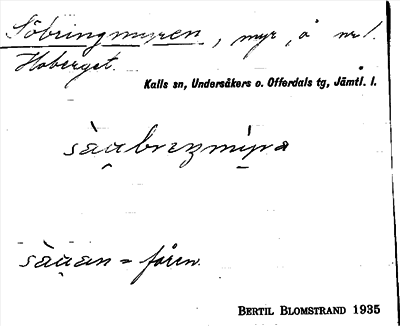 Söbringmyren, myr, å nr 1.
Hoberget.
Kalls sn, Undersåkers o. Offerdals tg, Jämtl. l.
sàu̯breŋmy̆ra
sàu̯an = fåren.
BERTIL BLOMSTRAND 1935